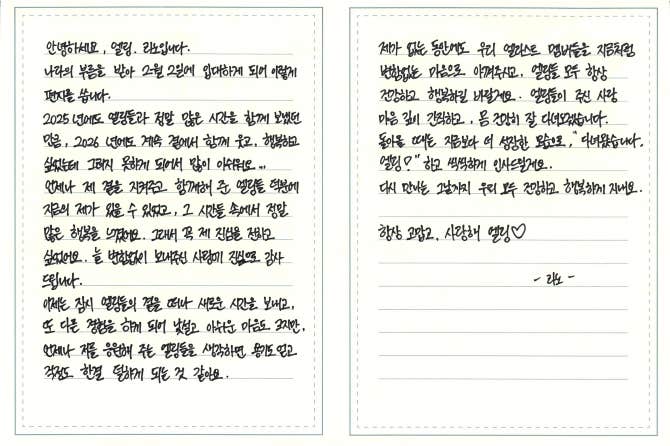 안녕하세요, 엘링. 리노입니다.
나라의 부름을 받아 2월 2일에 입대하게 되어 이렇게
편지를 씁니다.
2025년에도 엘링들과 정말 많은 시간을 함께 보냈던
만큼, 2026년에도 계속 곁에서 함께 웃고, 행복하고
싶었는데 그러지 못하게 되어서 많이 아쉬워요...
언제나 제 곁을 지켜주고 함께해 준 엘링들 덕분에
지금의 제가 있을 수 있었고, 그 시간들 속에서 정말
많은 행복을 느꼈어요. 그래서 꼭 제 진심을 전하고
싶었어요. 늘 변함없이 보내주신 사랑에 진심으로 감사
드립니다.
이제는 잠시 엘링들의 곁을 떠나 새로운 시간을 보내고,
또 다른 경험을 하게 되어 낯설고 아쉬운 마음도 크지만,
언제나 저를 응원해 주는 엘링들을 생각하면 용기도 얻고
걱정도 한결 덜하게 되는 것 같아요.
제가 없는 동안에도 우리 엘라스트 멤버들을 지금처럼
변함없는 마음으로 아껴주시고, 엘링들 모두 항상
건강하고 행복하길 바랄게요. 엘링들이 주신 사랑
마음 깊이 간직하고, 몸 건강히 잘 다녀오겠습니다.
돌아올 때는 지금보다 더 성장한 모습으로, "다녀왔습니다.
엘링♡" 하고 씩씩하게 인사드릴게요.
다시 만나는 그날까지 우리 모두 건강하고 행복하게 지내요.
항상 고맙고, 사랑해 엘링♡
- 리노 -